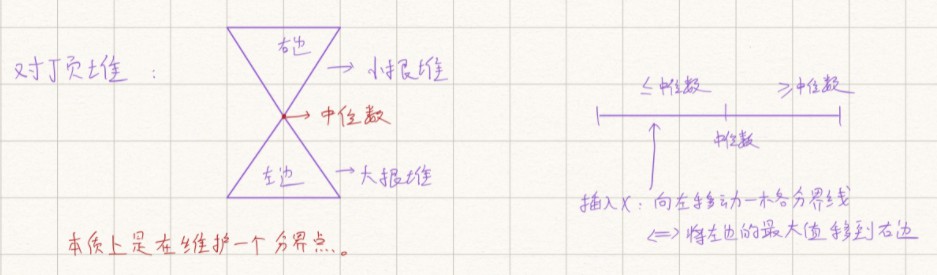 对顶堆：
右边
→ 小根堆
→ 中位数
左边
→ 大根堆
本质上是在维护一个分界点。
≤中位数
≥中位数
中位数
插入x：向左移动一格分界线
<=> 将左边的最大值移到右边